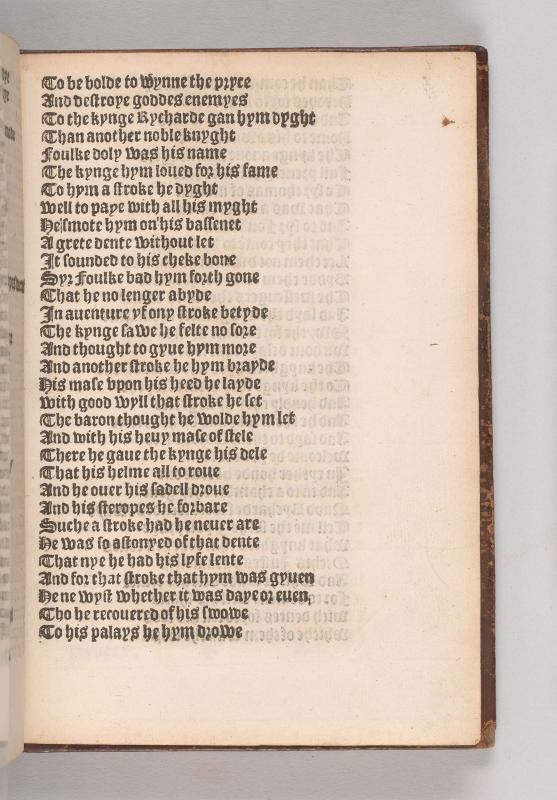 To be bolde to wynne the pryce
And destroye goddes enemyes
To the kynge Rycharde gan hym dyght
Than another noble knyght
Foulke doly was his name
The kynge hym loued for his fame
To hym a stroke he dyght
Well to paye with all his myght
He smote hym on his bassenet
A grete dente without let
It sounded to his cheke bone
Syr Foulke bad hym forth gone
That he no lenger abyde
In auenture yf ony stroke betyde
The kynge sawe he felte no sore
And thought to gyue hym more
And another stroke he hym brayde
His mase vpon his heed he layde
With good wyll that stroke he set
The baron thought he wolde hym let
And with his heuy mase of stele
There he gaue the kynge his dele
That his helme all to roue
And he ouer his sadell droue
And his steropes he forbare
Suche a stroke had he neuer are
He was so astonyed of that dente
That nye he had his lyfe lente
And for that stroke that hym was gyuen
He ne wyst whether it was daye or euen,
Tho he recouered of his swowe
To his palays he hym drowe